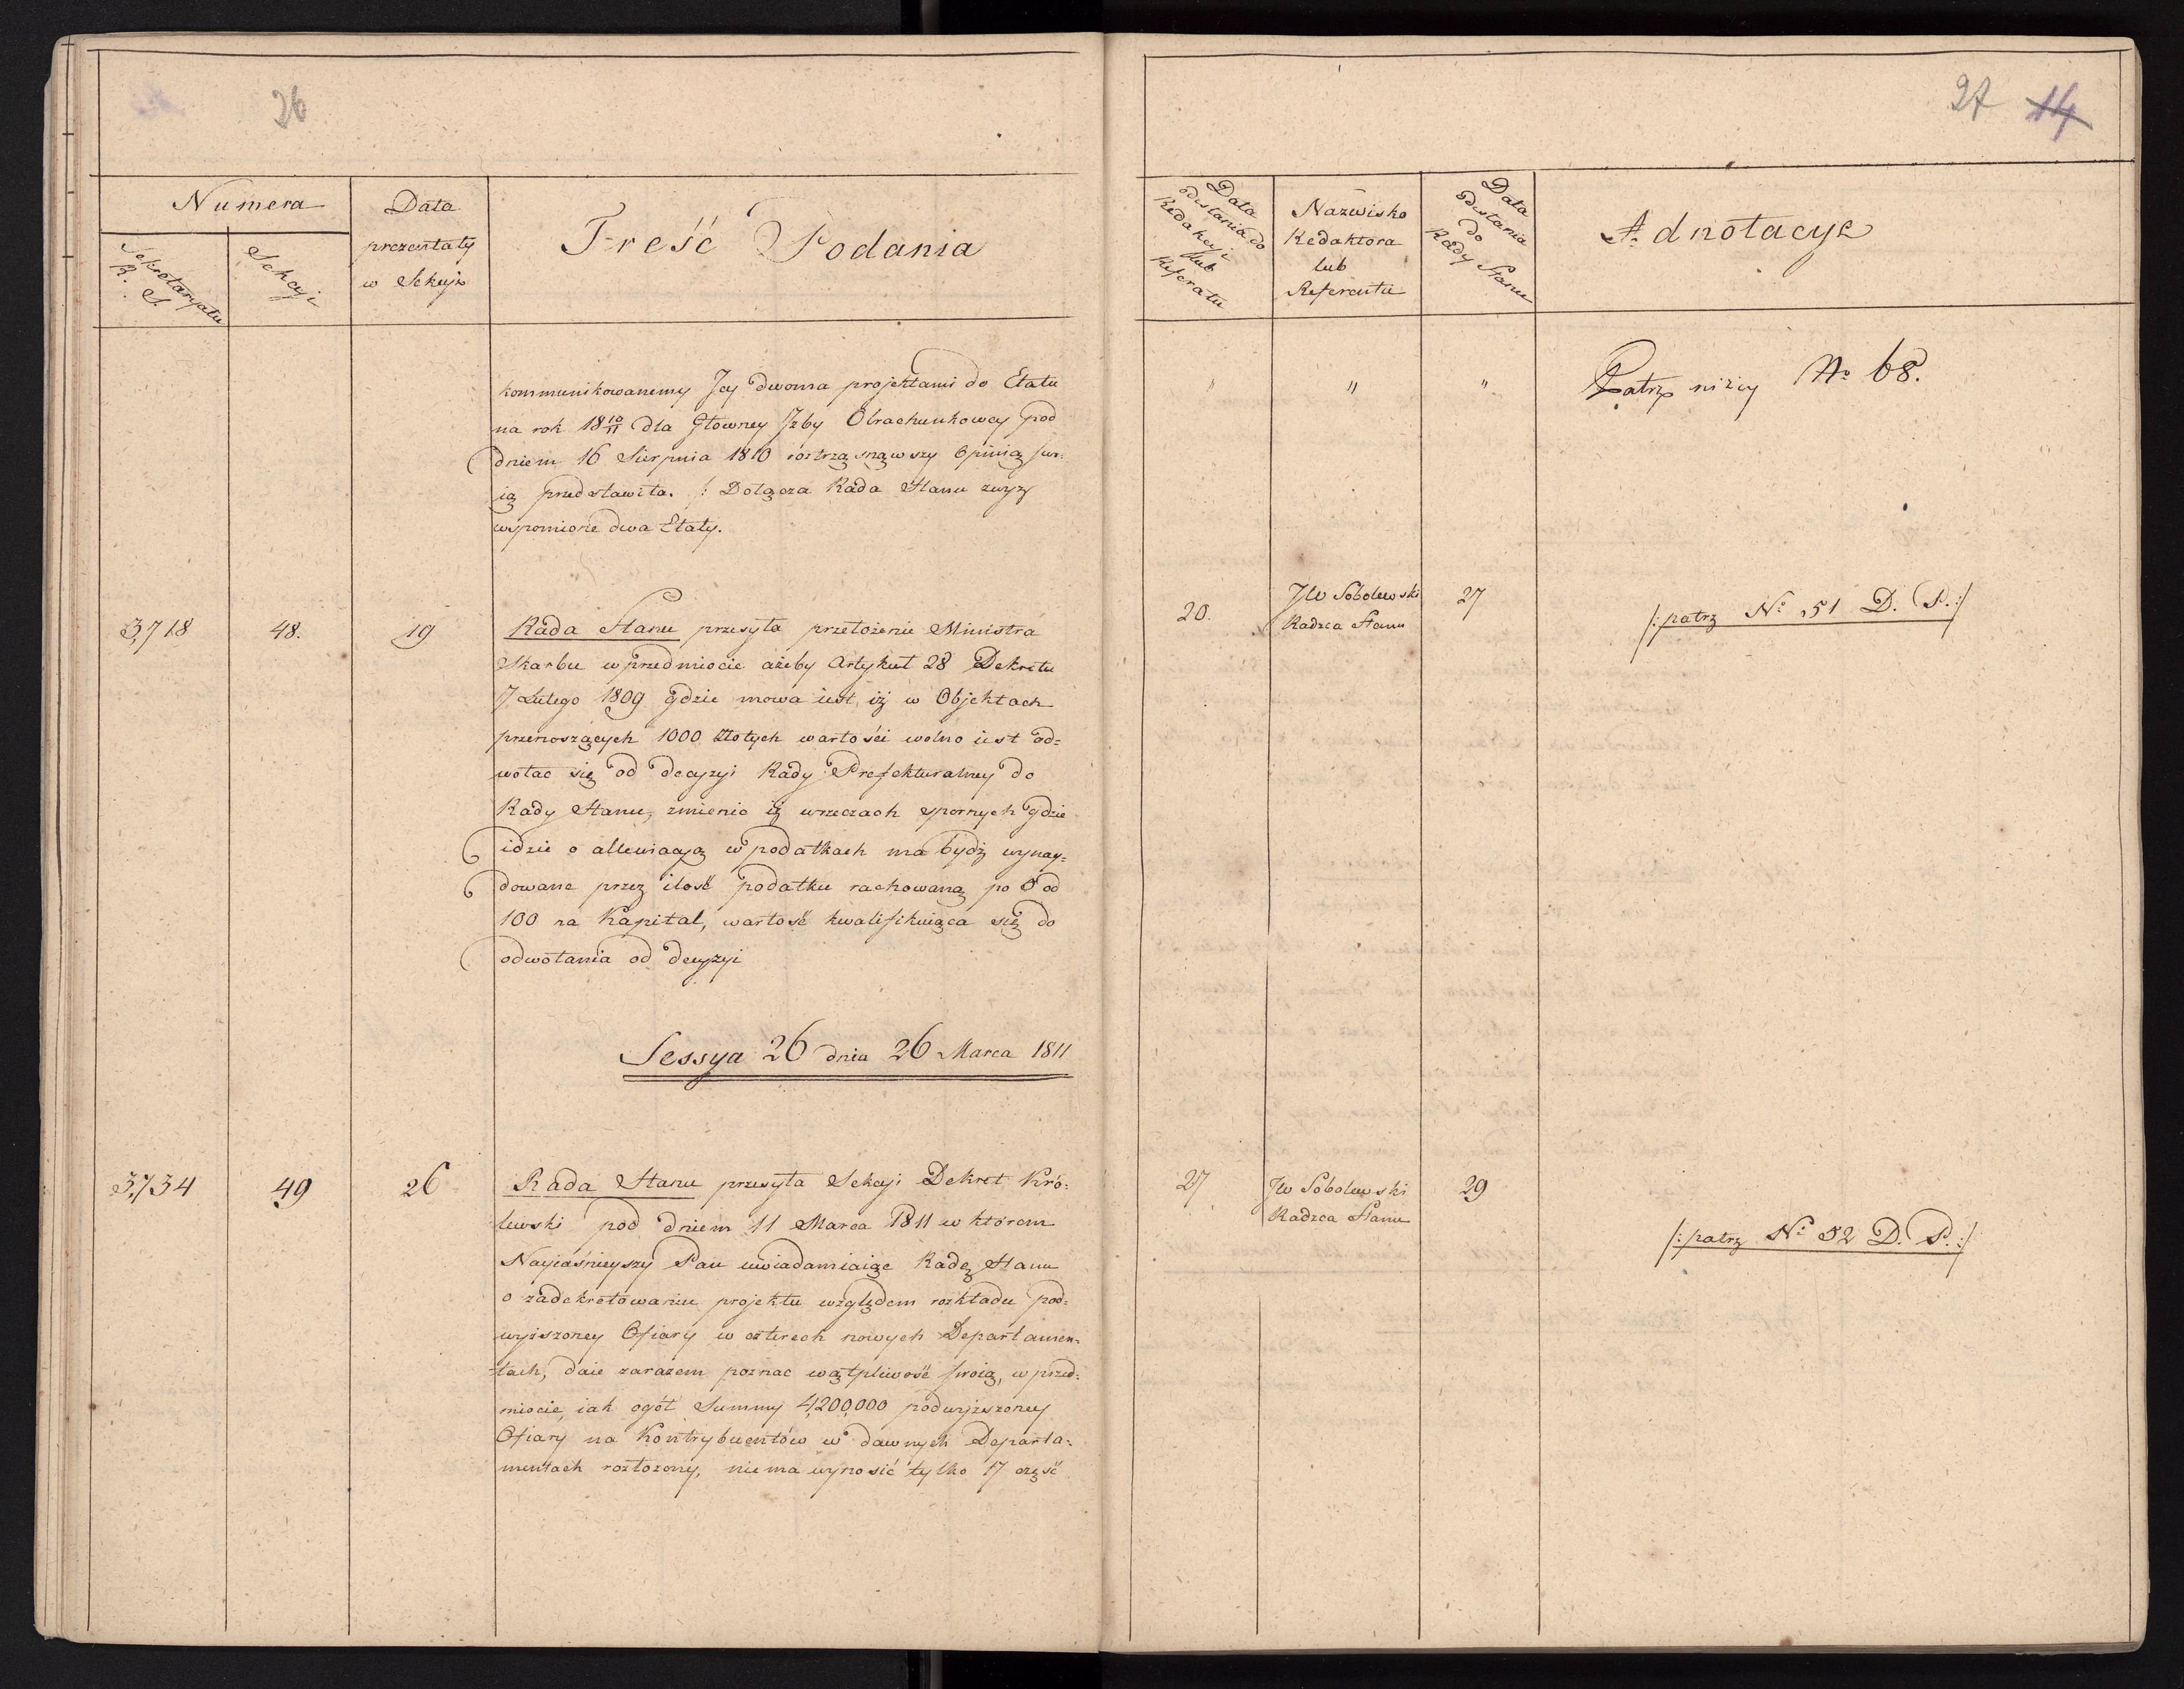 26
Numera
Sekretaryatu
R. S.
Sekcyi
Data
prezentaty
w Sekcyi
Treść Podania
kommunikowanemy Jey dwoma projektami do Etatu
na rok 18 10/11 dla Głowney Jzby Obrachunkowey pod
dniem 16 Sierpnia 1810 roztrząsnąwszy Opinią swo:
ią przedstawiła. /: Dołącza Rada Stanu zwyz
wspomione dwa Etaty.
3,718
48.
19
Rada Stanu przesyła przełożenie Ministra
Skarbu w przedmiocie ażeby Artykuł 28 Dekretu
7 Lutego 1809 gdzie mowa iest, iż w Objektach
przenoszących 1000 złotych wartości wolno iest od=
wołac się od decyzyi Rady Prefekturalney do
Rady Stanu, zmienic iż w rzeczach spornych gdzie
idzie o allewiacyą w podatkach ma bydź wynay=
dowana przez ilość podatku rachowaną po 5 od
100 na Kapitał, wartość kwalifikuiąca się do
odwołania od decyzyi
Sessya 26 dnia 26 Marca 1811
3,734
49
26
Rada Stanu przesyła Sekcyi Dekret Kró:
lewski pod dniem 11 Marca 1811 w którem
Nayiaśnieyszy Pan uwiadamiaiąc Radę Stanu
o zadekretowaniu projektu względem rozkładu pod=
wyższoney Ofiary w czterech nowych Departamen=
tach, daie zarazem poznac wątpliwość swoią, w przed:
miocie, iak ogół Summy 4,200,000 podwyższoney
Ofiary na Kontrybuentów w dawnych Departa:
mentach rozłożony, nie ma wynosić tylko 17 część
27 14
Data
odesłania do
Redakcyi
lub
Referatu
Nazwisko
Redaktora
lub
Referenta
Data
odesłania
do
Rady Stanu
Adnotacye
" " "
Patrz niżey No 68.
20.
JW Sobolewski
Radzca Stanu
27
/: patrz No 51 D. P. :/
27
JW Sobolewski
Radzca Stanu
29
/: patrz No 52 D. P. :/